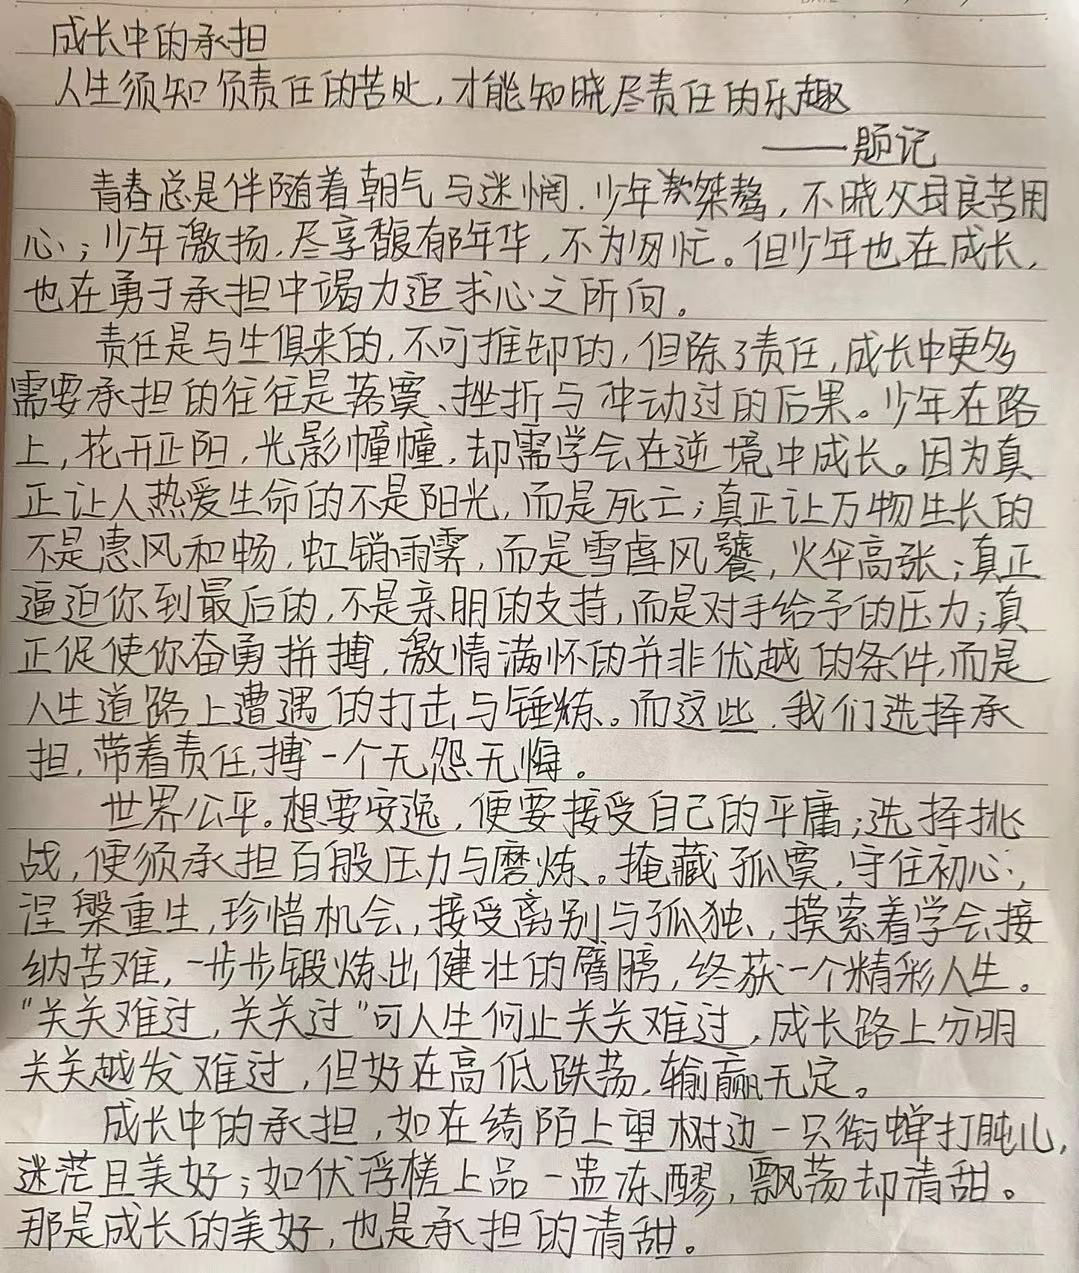 成长中的承担
人生须知负责任的苦处,才能知晓尽责任的乐趣
——题记
青春总是伴随着朝气与迷惘.少年桀骜,不晓父母良苦用
心;少年激扬.尽享馥郁年华,不为匆忙。但少年也在成长,
也在勇于承担中竭力追求心之所向。
责任是与生俱来的,不可推卸的,但除了责任,成长中更多
需要承担的往往是落寞、挫折与冲动过的后果。少年在路
上,花开正阳,光影幢幢,却需学会在逆境中成长。因为真
正让人热爱生命的不是阳光,而是死亡;真正让万物生长的
不是惠风和畅,虹销雨霁,而是雪虐风饕,火伞高张;真正
逼迫你到最后的,不是亲朋的支持,而是对手给予的压力;真
正促使你奋勇拼搏,激情满怀的并非优越的条件,而是
人生道路上遭遇的打击与锤炼。而这些,我们选择承
担,带着责任,搏一个无怨无悔。
世界公平。想要安逸,便要接受自己的平庸;选择挑
战,便须承担百般压力与磨炼。掩藏孤寞,守住初心,
涅槃重生,珍惜机会,接受离别与孤独,摸索着学会接
纳苦难,一步步锻炼出健壮的臂膀,终获一个精彩人生。
"关关难过,关关过"可人生何止关关难过,成长路上分明
关关越发难过,但好在高低跌荡,输赢无定。
成长中的承担,如在绮陌上望树边一只衔蝉打盹儿,
迷茫且美好;如伏浮槎上品一盅冻醪,飘荡却清甜。
那是成长的美好,也是承担的清甜。